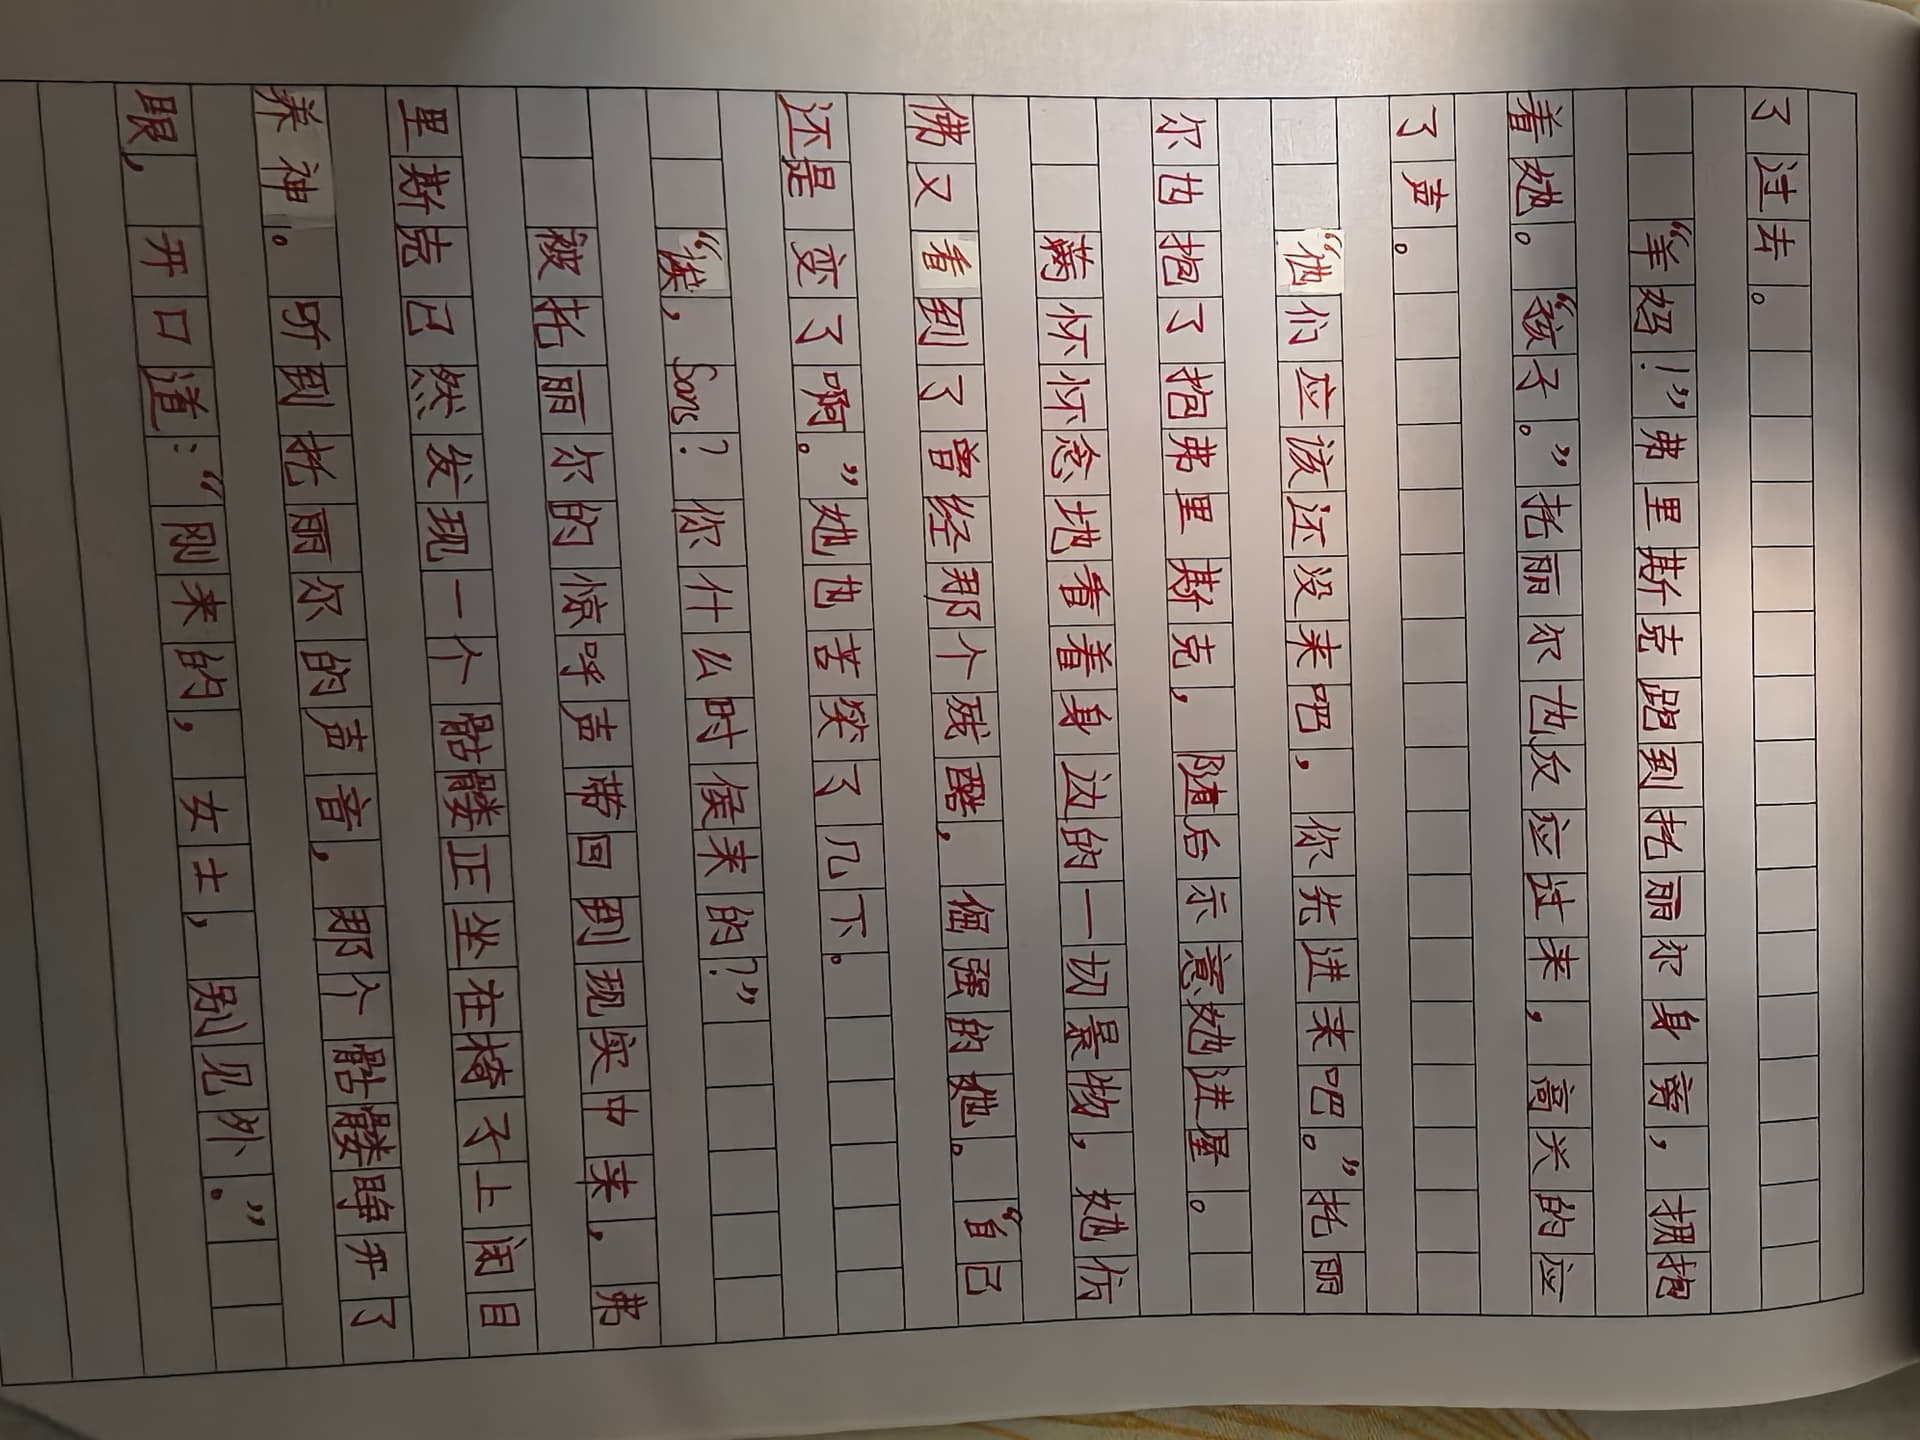 了过去。
“羊妈！”弗里斯克跑到托丽尔身旁，拥抱
着她。“孩子。”托丽尔也反应过来，高兴的应
了声。
“他们应该还没来吧，你先进来吧。”托丽
尔也抱了抱弗里斯克，随后示意她进屋。
满怀怀念地看着身边的一切景物，她仿
佛又看到了曾经那个残酷，倔强的她。“自己
还是变了啊。”她也苦笑了几下。
“诶，Sans？你什么时侯来的？”
被托丽尔的惊呼声带回到现实中来，弗
里斯克已然发现一个骷髅正坐在椅子上闭目
养神。听到托丽尔的声音，那个骷髅睁开了
眼，开口道：“刚来的，女士，别见外。”